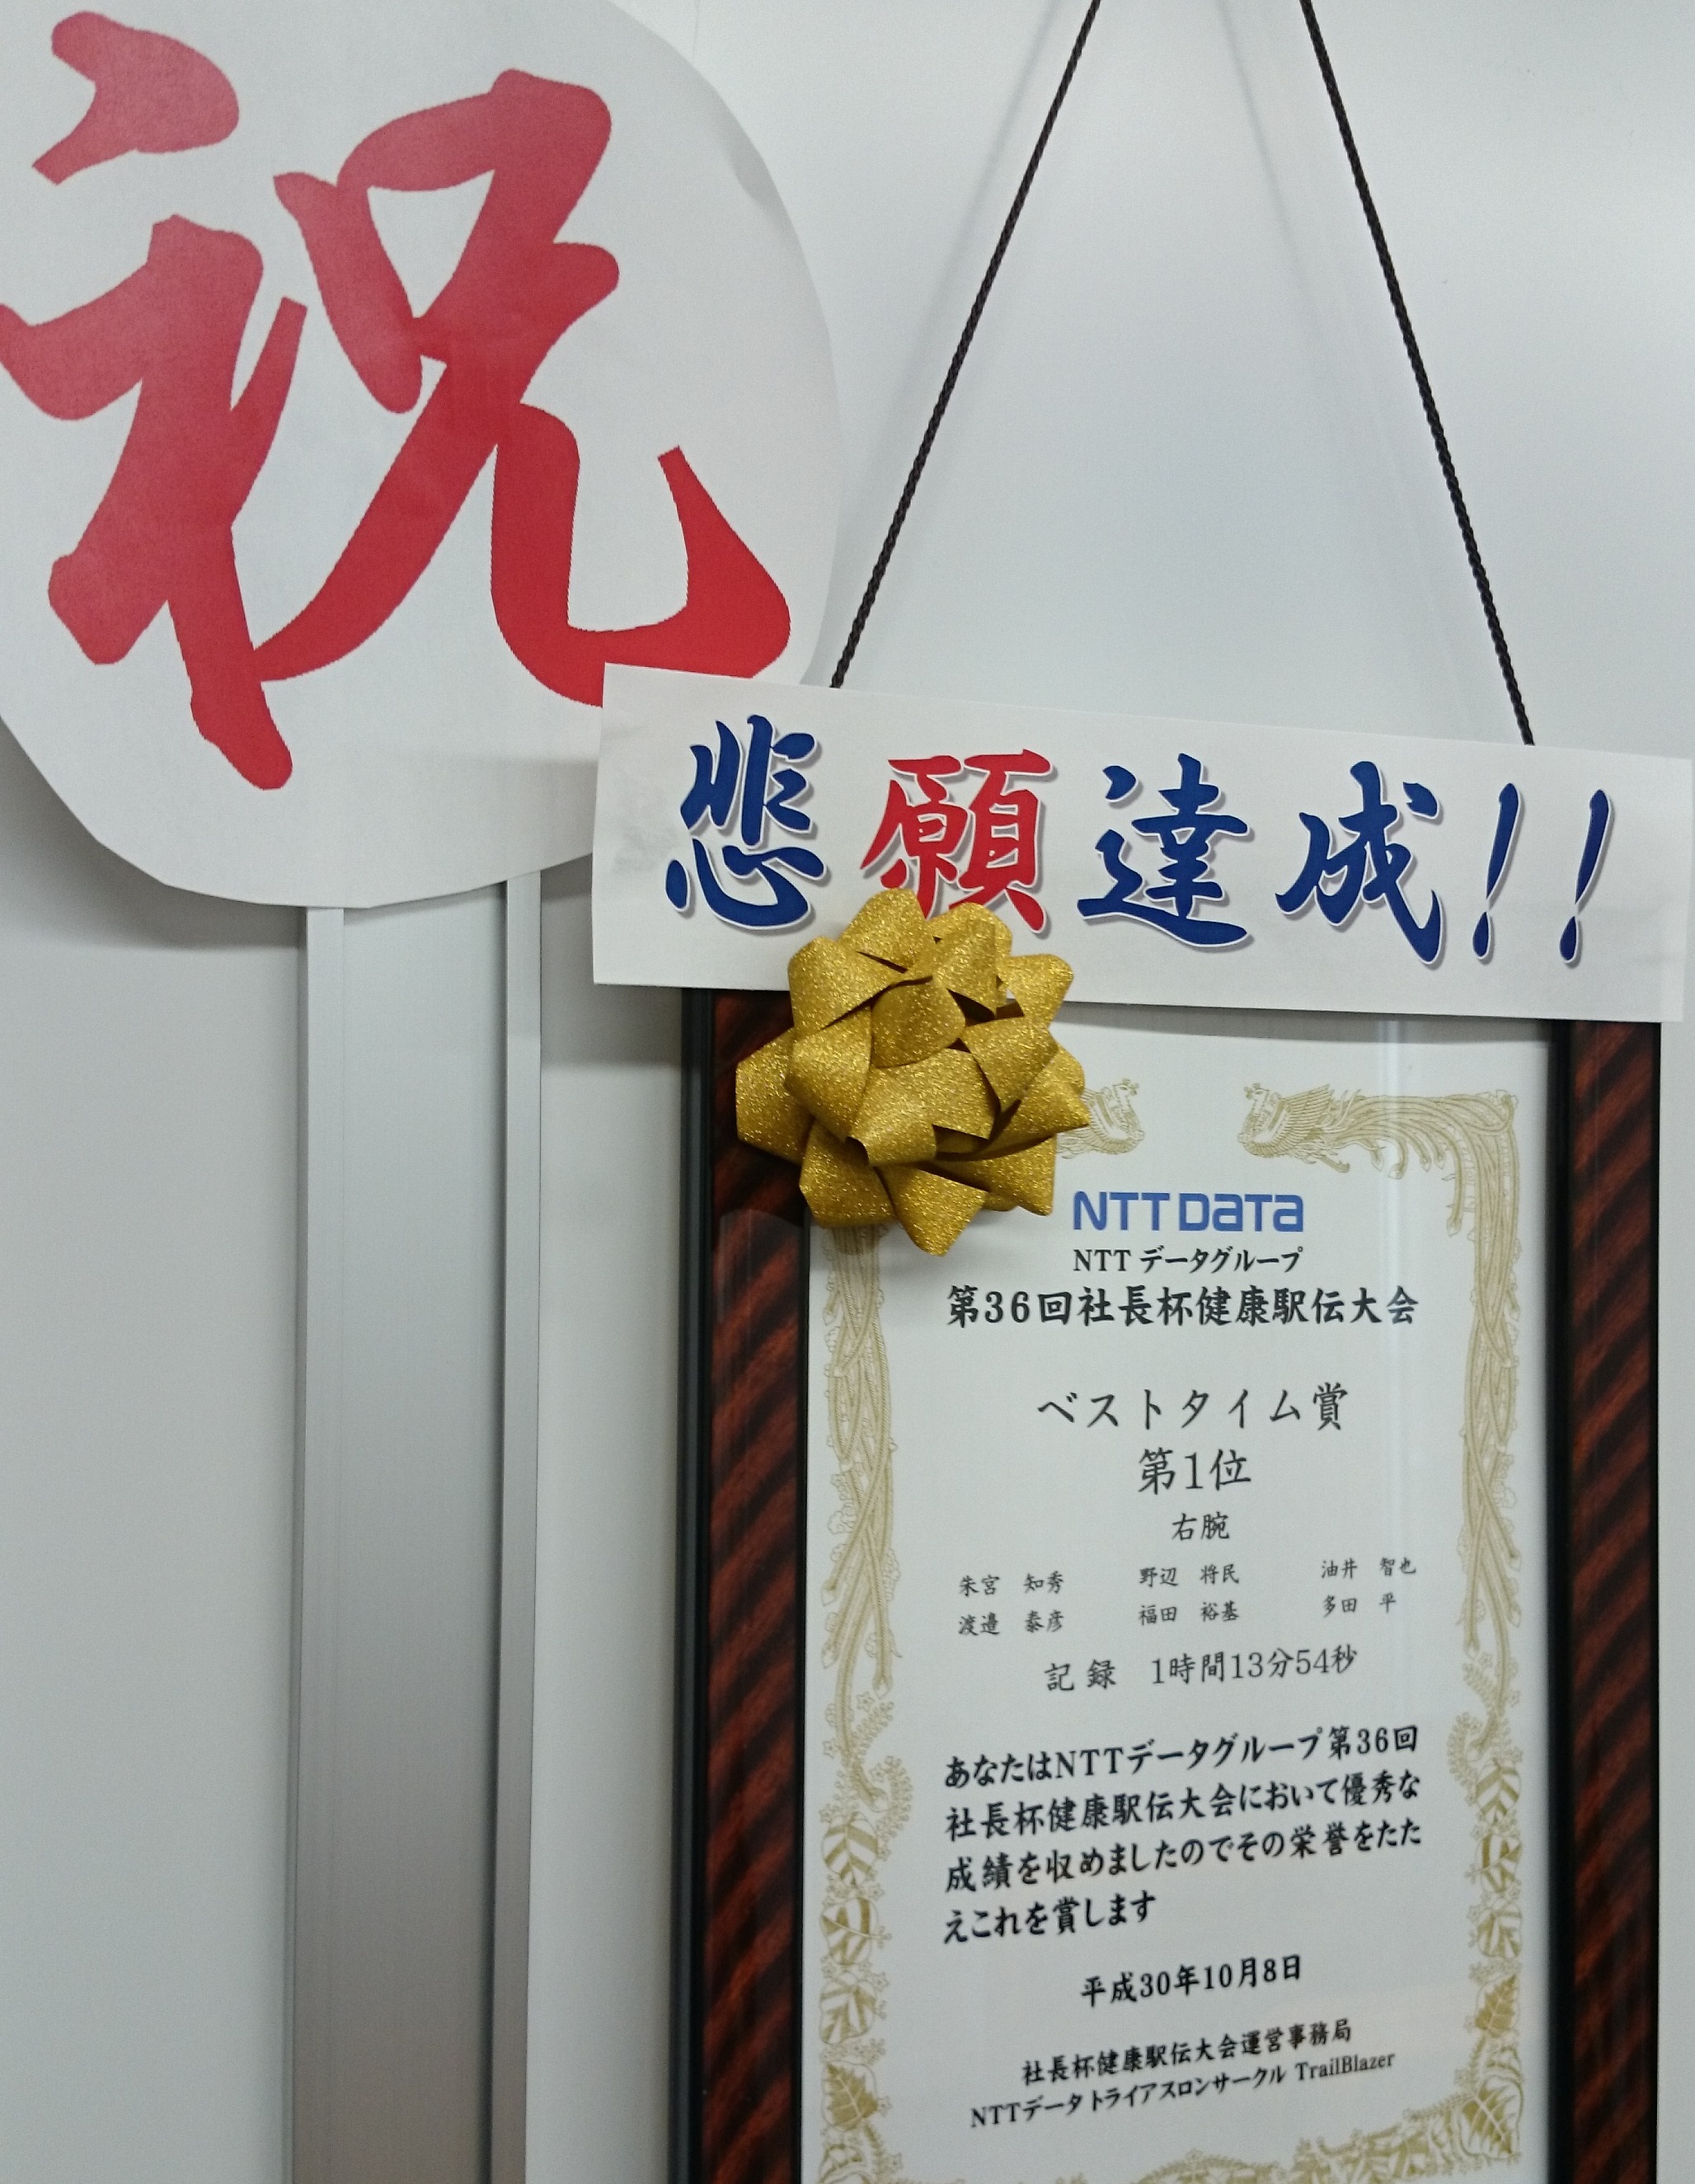 祝
悲願達成!!
NTT DATA
NTT データグループ
第36回社長杯健康駅伝大会
ベストタイム賞
第1位
右腕
朱宮 知秀 野辺 将民 油井 智也
渡邉 泰彦 福田 裕基 多田 平
記録 1時間13分54秒
あなたはNTTデータグループ第36回
社長杯健康駅伝大会において優秀な
成績を収めましたのでその栄誉をたた
えこれを賞します
平成30年10月8日
社長杯健康駅伝大会運営事務局
NTTデータ トライアスロンサークル TrailBlazer